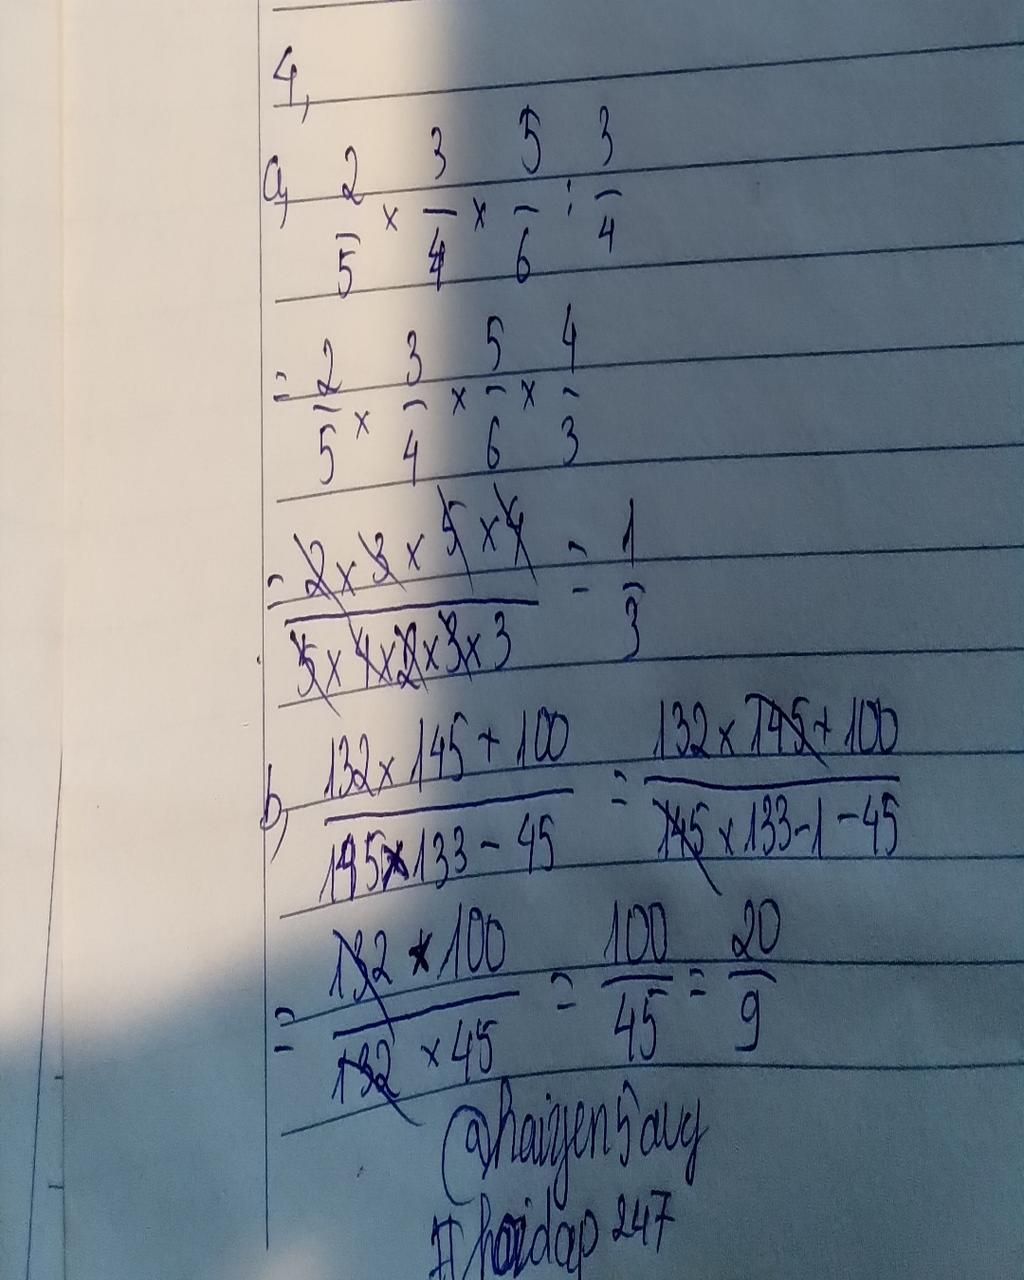 4,
a, 2/5 × 3/4 × 5/6 : 3/4
= 2/5 × 3/4 × 5/6 × 4/3
= 2 × 3 × 5 × 4 / 5 × 4 × 2 × 3 × 3 = 1/3
b, 132 × 145 + 100 / 145 × 133 - 45 = 132 × 145 + 100 / 145 × 133 - 1 - 45
= 132 × 100 / 132 × 45 = 100/45 = 20/9
@haiyen5avg
#hoidap247